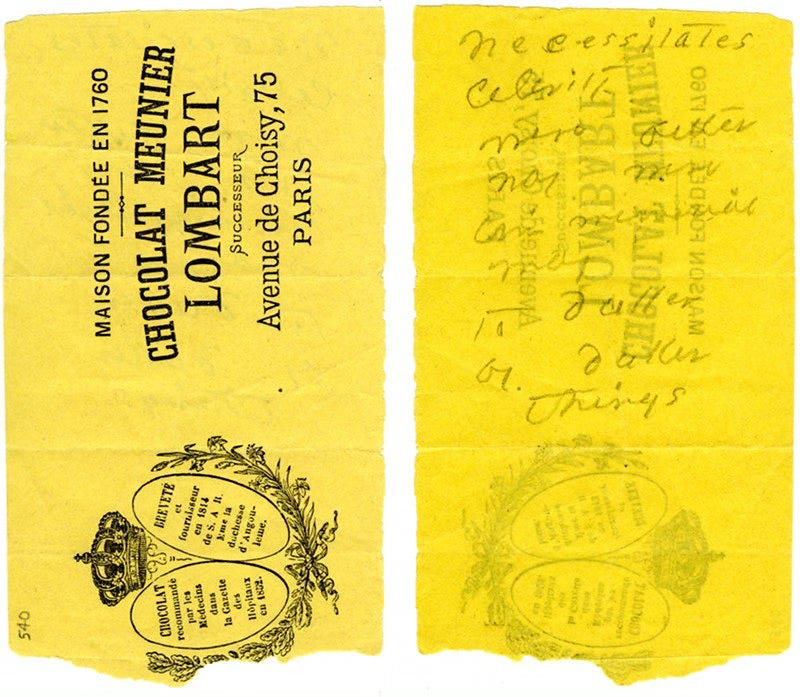 MAISON FONDÉE EN 1760
CHOCOLAT MEUNIER
LOMBART
SUCCESSEUR
Avenue de Choisy, 75
PARIS
BREVETÉ
et
fournisseur
en 1814
de S. A. R.
Mme la
duchesse
d'Angou-
leme.
CHOCOLAT
recommandé
par les
Médecins
dans
la Gazette
des
Hôpitaux
en 1832.
540
necessitates
celerity
were better
nay were
immemorial
may
to duller
by duller
things